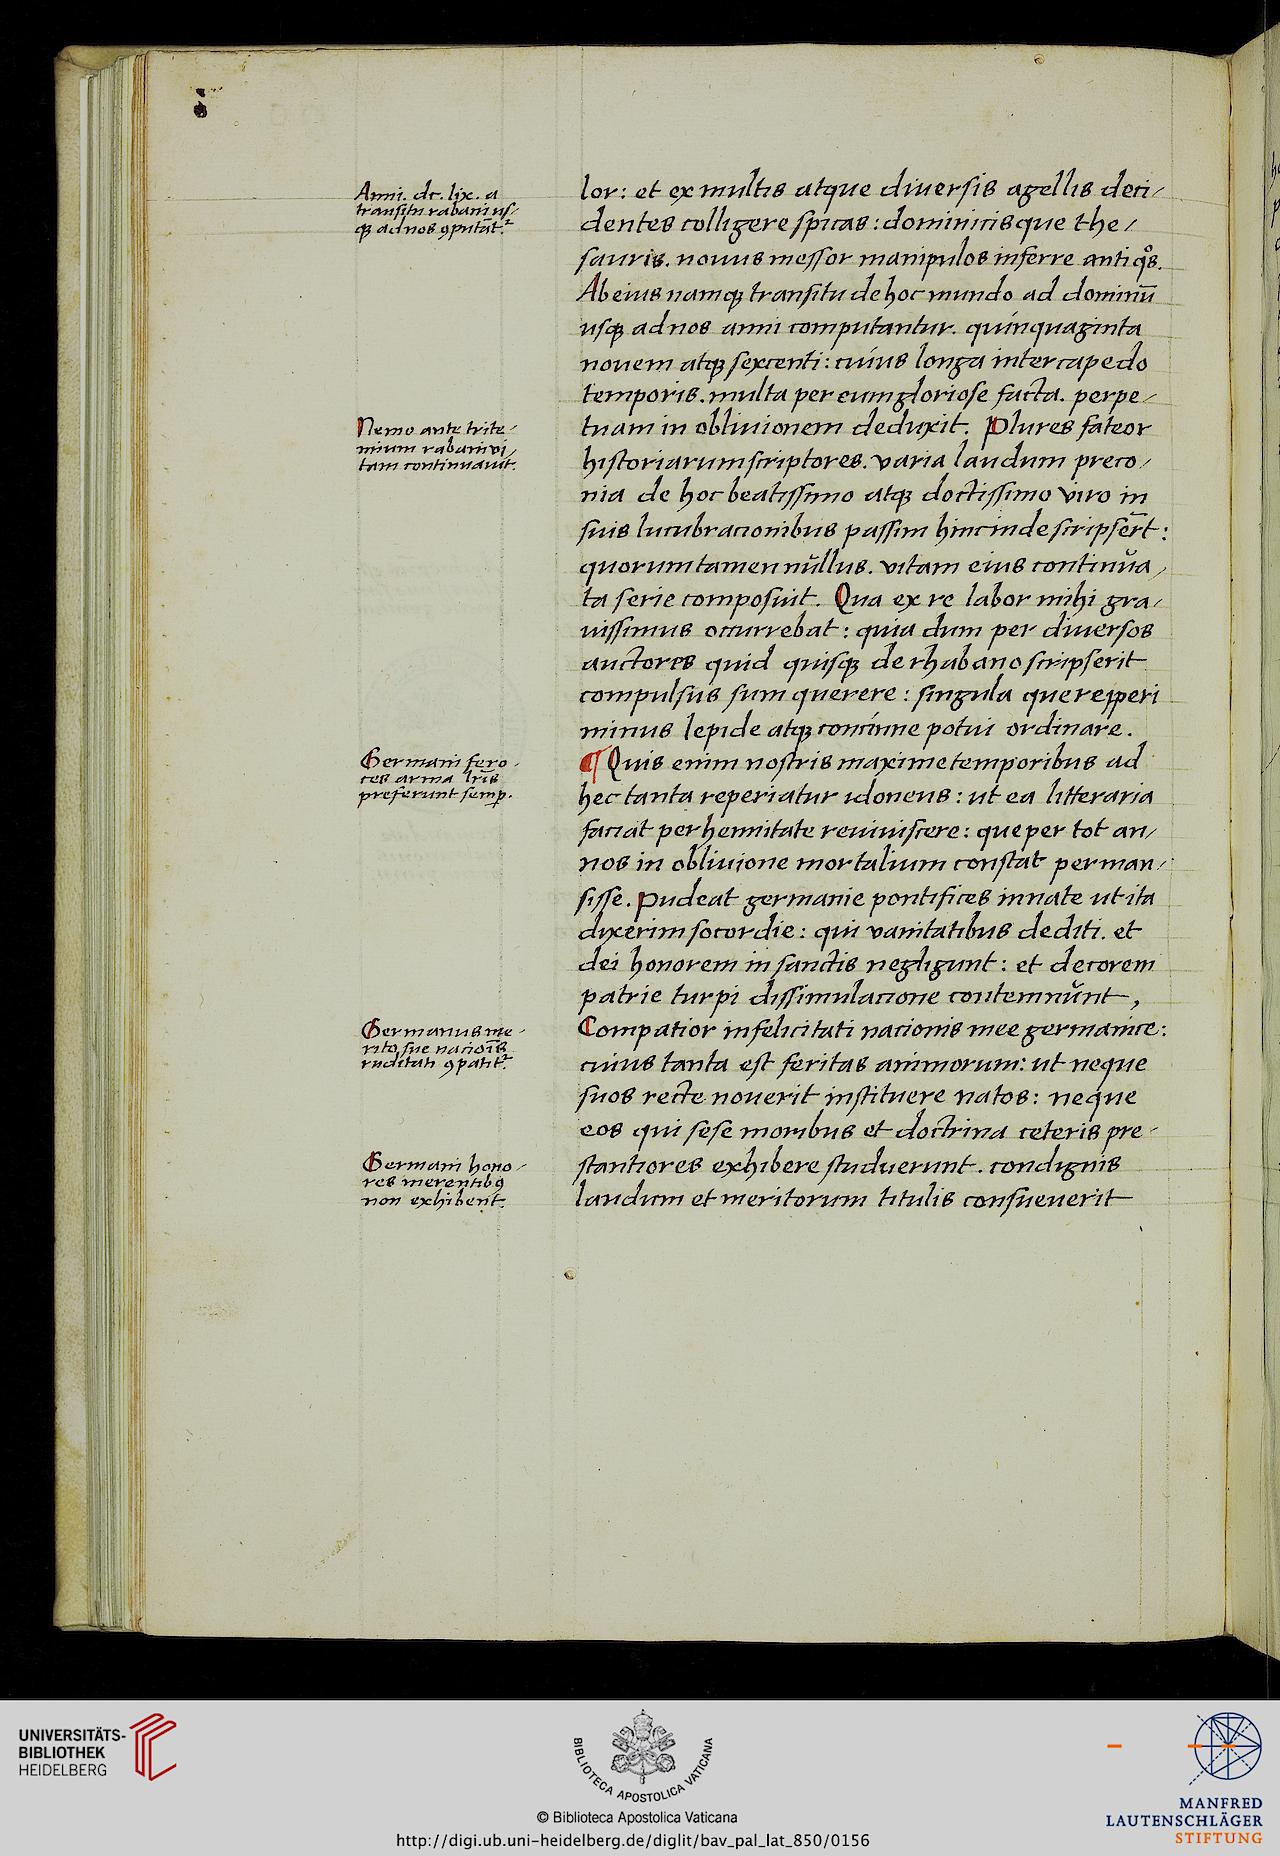 Anni. dc. lix. a
transitu rabani us/
qꝫ ad nos ꝯputāt᷑.
lor: et ex multis atque diversis agellis deci/
dentes colligere spicas: dominicisque the/
sauris. novus messor manipulos inferre antiqͦs.
Ab eius namqꝫ transitu de hoc mundo ad dominū
usqꝫ ad nos anni computantur. quinquaginta
novem atqꝫ sexcenti: cuius longa intercapedo
temporis. multa per eum gloriose facta. perpe/
Nemo ante trite/
mium rabani vi/
tam continuavit.
tuam in oblivionem deduxit. Plures fateor
historiarum scriptores. varia laudum preco/
nia de hoc beatissimo atqꝫ doctissimo viro in
suis lucubracionibus passim hincinde scripser̄t:
quorum tamen nŭllus. vitam eius continŭa/
ta serie composuit. Qua ex re labor mihi gra/
vissimus occurrebat: quia dum per diversos
auctores quid quisqꝫ de rhabano scripserit
compulsus sum querere: singula que repperi
minus lepide atqꝫ concinne potui ordinare.
Germani fero/
ces arma lr̄is
preferunt semꝑ.
¶ Quis enim nostris maxime temporibus ad
hec tanta reperiatur idoneus: ut ea litteraria
faciat perhennitate reviviscere: que per tot an/
nos in oblivione mortalium constat perman/
sisse. Pudeat germanie pontifices innate ut ita
dixerim socordie: qui vanitatibus dediti. et
dei honorem in sanctis negligunt: et decorem
patrie turpi dissimulacione contemnŭnt,
Germanus me/
rito sue nacioīs
ruditati ꝯpatit᷑.
Compatior infelicitati nacionis mee germanice:
cuius tanta est feritas animorum: ut neque
suos recte noverit instituere natos: neque
eos qui sese moribus et doctrina ceteris pre/
Germani hono/
res merentibꝯ
non exhibent.
stantiores exhibere studuerunt. condignis
laudum et meritorum titulis consueverit
UNIVERSITÄTS-
BIBLIOTHEK
HEIDELBERG
BIBLIOTECA APOSTOLICA VATICANA
© Biblioteca Apostolica Vaticana
http://digi.ub.uni-heidelberg.de/diglit/bav_pal_lat_850/0156
MANFRED
LAUTENSCHLÄGER
STIFTUNG